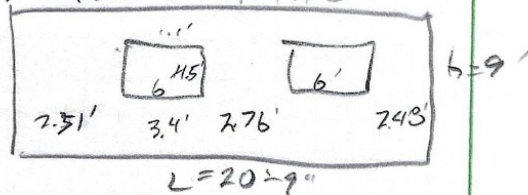 4.5'
6
6'
h = 9'
2.51'
3.4'
2.76'
2.43'
L = 20 - 9"